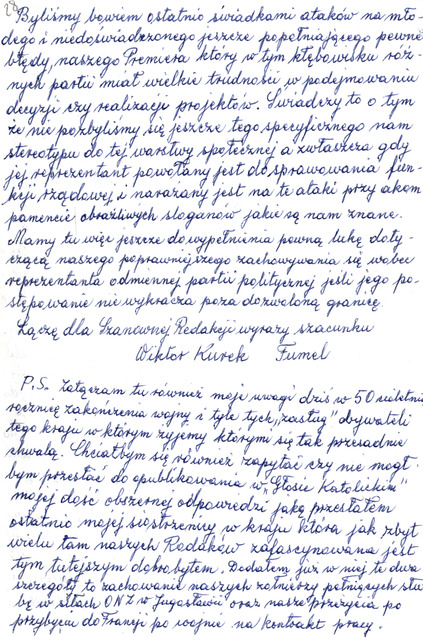 28
Byliśmy bowiem ostatnio świadkami ataków na mło-
dego i niedoświadczonego jeszcze popełniającego pewne
błędy, naszego Premiera który w tym kłębowisku róż-
nych partii miał wielkie trudności w podejmowaniu
decyzji czy realizacji projektów. Świadczy to o tym
że nie pozbyliśmy się jeszcze tego specyficznego nam
stereotypu do tej warstwy społecznej a zwłaszcza gdy
jej reprezentant powołany jest do sprawowania fun-
kcji rządowej i narażany jest na te ataki przy akom
pamencie obraźliwych sloganów jakie są nam znane.
Mamy tu więc jeszcze do wypełnienia pewną lukę doty-
czącą naszego poprawniejszego zachowywania się wobec
reprezentanta odmiennej partii politycznej jeśli jego po-
stępowanie nie wykracza poza dozwoloną granicę.
Łączę dla Szanownej Redakcji wyrazy szacunku
Wiktor Kurek Fumel
P.S. Załączam tu również moje uwagi dziś w 50 cioletnią
rocznicę zakończenia wojny i tyle tych „zasług" obywateli
tego kraju w którym żyjemy którymi się tak przesadnie
chwalą. Chciałbym się również zapytać czy nie mógł-
bym przesłać do opublikowania w „Głosie Katolickim"
mojej dość obszernej odpowiedzi jaką przesłałem
ostatnio mojej siostrzenicy w kraju która jak zbyt
wielu tam naszych Rodaków zafascynowana jest
tym tutejszym dobrobytem. Dodałem już w niej te dwa
szczegóły to zachowanie naszych żołnierzy pełniących słu
żbę w siłach ONZ w Jugosławii oraz nasze przeżycia po
przybyciu do Francji po wojnie na kontrakt pracy.